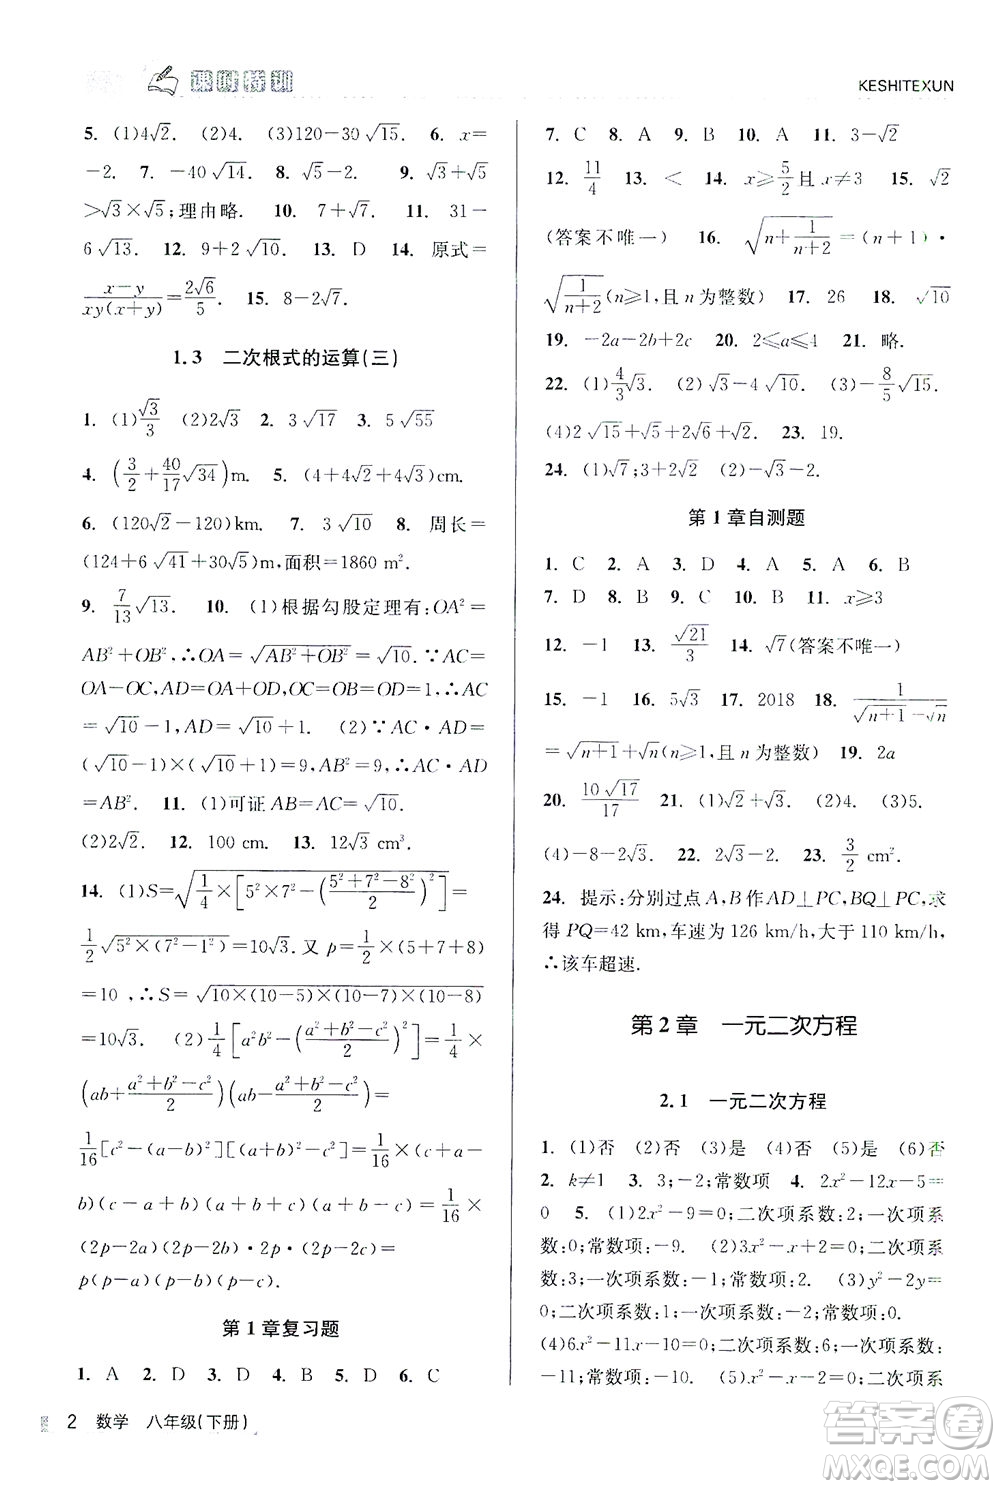 课时特训
KESHITEXUN
5. (1)4√2. (2)4. (3)120-30√15. 6. x=
-2. 7. -40√14. 8. √5-2. 9. √3+√5
>√3×√5;理由略. 10. 7+√7. 11. 31-
6√13. 12. 9+2√10. 13. D 14. 原式=
(x-y)/(xy(x+y))=2√6/5. 15. 8-2√7.
1.3 二次根式的运算(三)
1. (1)√3/3 (2)2√3 2. 3√17 3. 5√55
4. (3/2+40/17√34)m. 5. (4+4√2+4√3)cm.
6. (120√2-120)km. 7. 3√10 8. 周长=
(124+6√41+30√5)m,面积=1860 m².
9. 7/13√13. 10. (1)根据勾股定理有:OA²=
AB²+OB²,∴OA=√(AB²+OB²)=√10.∵AC=
OA-OC,AD=OA+OD,OC=OB=OD=1,∴AC
=√10-1,AD=√10+1. (2)∵AC·AD=
(√10-1)×(√10+1)=9,AB²=9,∴AC·AD
=AB². 11. (1)可证AB=AC=√10.
(2)2√2. 12. 100 cm. 13. 12√3 cm³.
14. (1)S=√(1/4×[5²×7²-((5²+7²-8²)/2)²])=
1/2√(5²×(7²-1²))=10√3.又p=1/2×(5+7+8)
=10,∴S=√(10×(10-5)×(10-7)×(10-8))
=10√3. (2)1/4[a²b²-((a²+b²-c²)/2)²]=1/4×
(ab+(a²+b²-c²)/2)×(ab-(a²+b²-c²)/2)=
1/16[c²-(a-b)²][(a+b)²-c²]=1/16×(c+a-
b)(c-a+b)(a+b+c)(a+b-c)=1/16×
(2p-2a)(2p-2b)·2p·(2p-2c)=
p(p-a)(p-b)(p-c).
第1章复习题
1. A 2. D 3. D 4. B 5. D 6. C
7. C 8. A 9. B 10. A 11. 3-√2
12. 11/4 13. < 14. x≥5/2且x≠3 15. √2
(答案不唯一) 16. √(n+1/(n+2))=(n+1)·
√(1/(n+2))(n≥1,且n为整数) 17. 26 18. √10
19. -2a-2b+2c 20. 2≤a≤4 21. 略.
22. (1)4/3√3. (2)√3-4√10. (3)-8/5√15.
(4)2√15+√5+2√6+√2. 23. 19.
24. (1)√7;3+2√2 (2)-√3-2.
第1章自测题
1. C 2. A 3. D 4. A 5. A 6. B
7. D 8. B 9. C 10. B 11. x≥3
12. -1 13. √21/3 14. √7(答案不唯一)
15. -1 16. 5√3 17. 2018 18. 1/(√(n+1)-√n)
=√(n+1)+√n(n≥1,且n为整数) 19. 2a
20. 10√17/17 21. (1)√2+√3. (2)4. (3)5.
(4)-8-2√15. 22. 2√3-2. 23. 3/2 cm².
24. 提示:分别过点A,B作AD⊥PC,BQ⊥PC,求
得PQ=42 km,车速为126 km/h,大于110 km/h,
∴该车超速.
第2章 一元二次方程
2.1 一元二次方程
1. (1)否 (2)否 (3)是 (4)否 (5)是 (6)否
2. k≠1 3. 2;-2;常数项 4. 2x²-12x-5=
0 5. (1)2x²-9=0;二次项系数:2;一次项系
数:0;常数项:-9. (2)3x²-x+2=0;二次项系
数:3;一次项系数:-1;常数项:2. (3)y²-2y=
0;二次项系数:1;一次项系数:-2;常数项:0.
(4)6x²-11x-10=0;二次项系数:6;一次项系数:
-11;常数项:-10. (5)2x²-x-7=0;二次项系
2 数学 八年级(下册)
答案圈
MXQE.COM